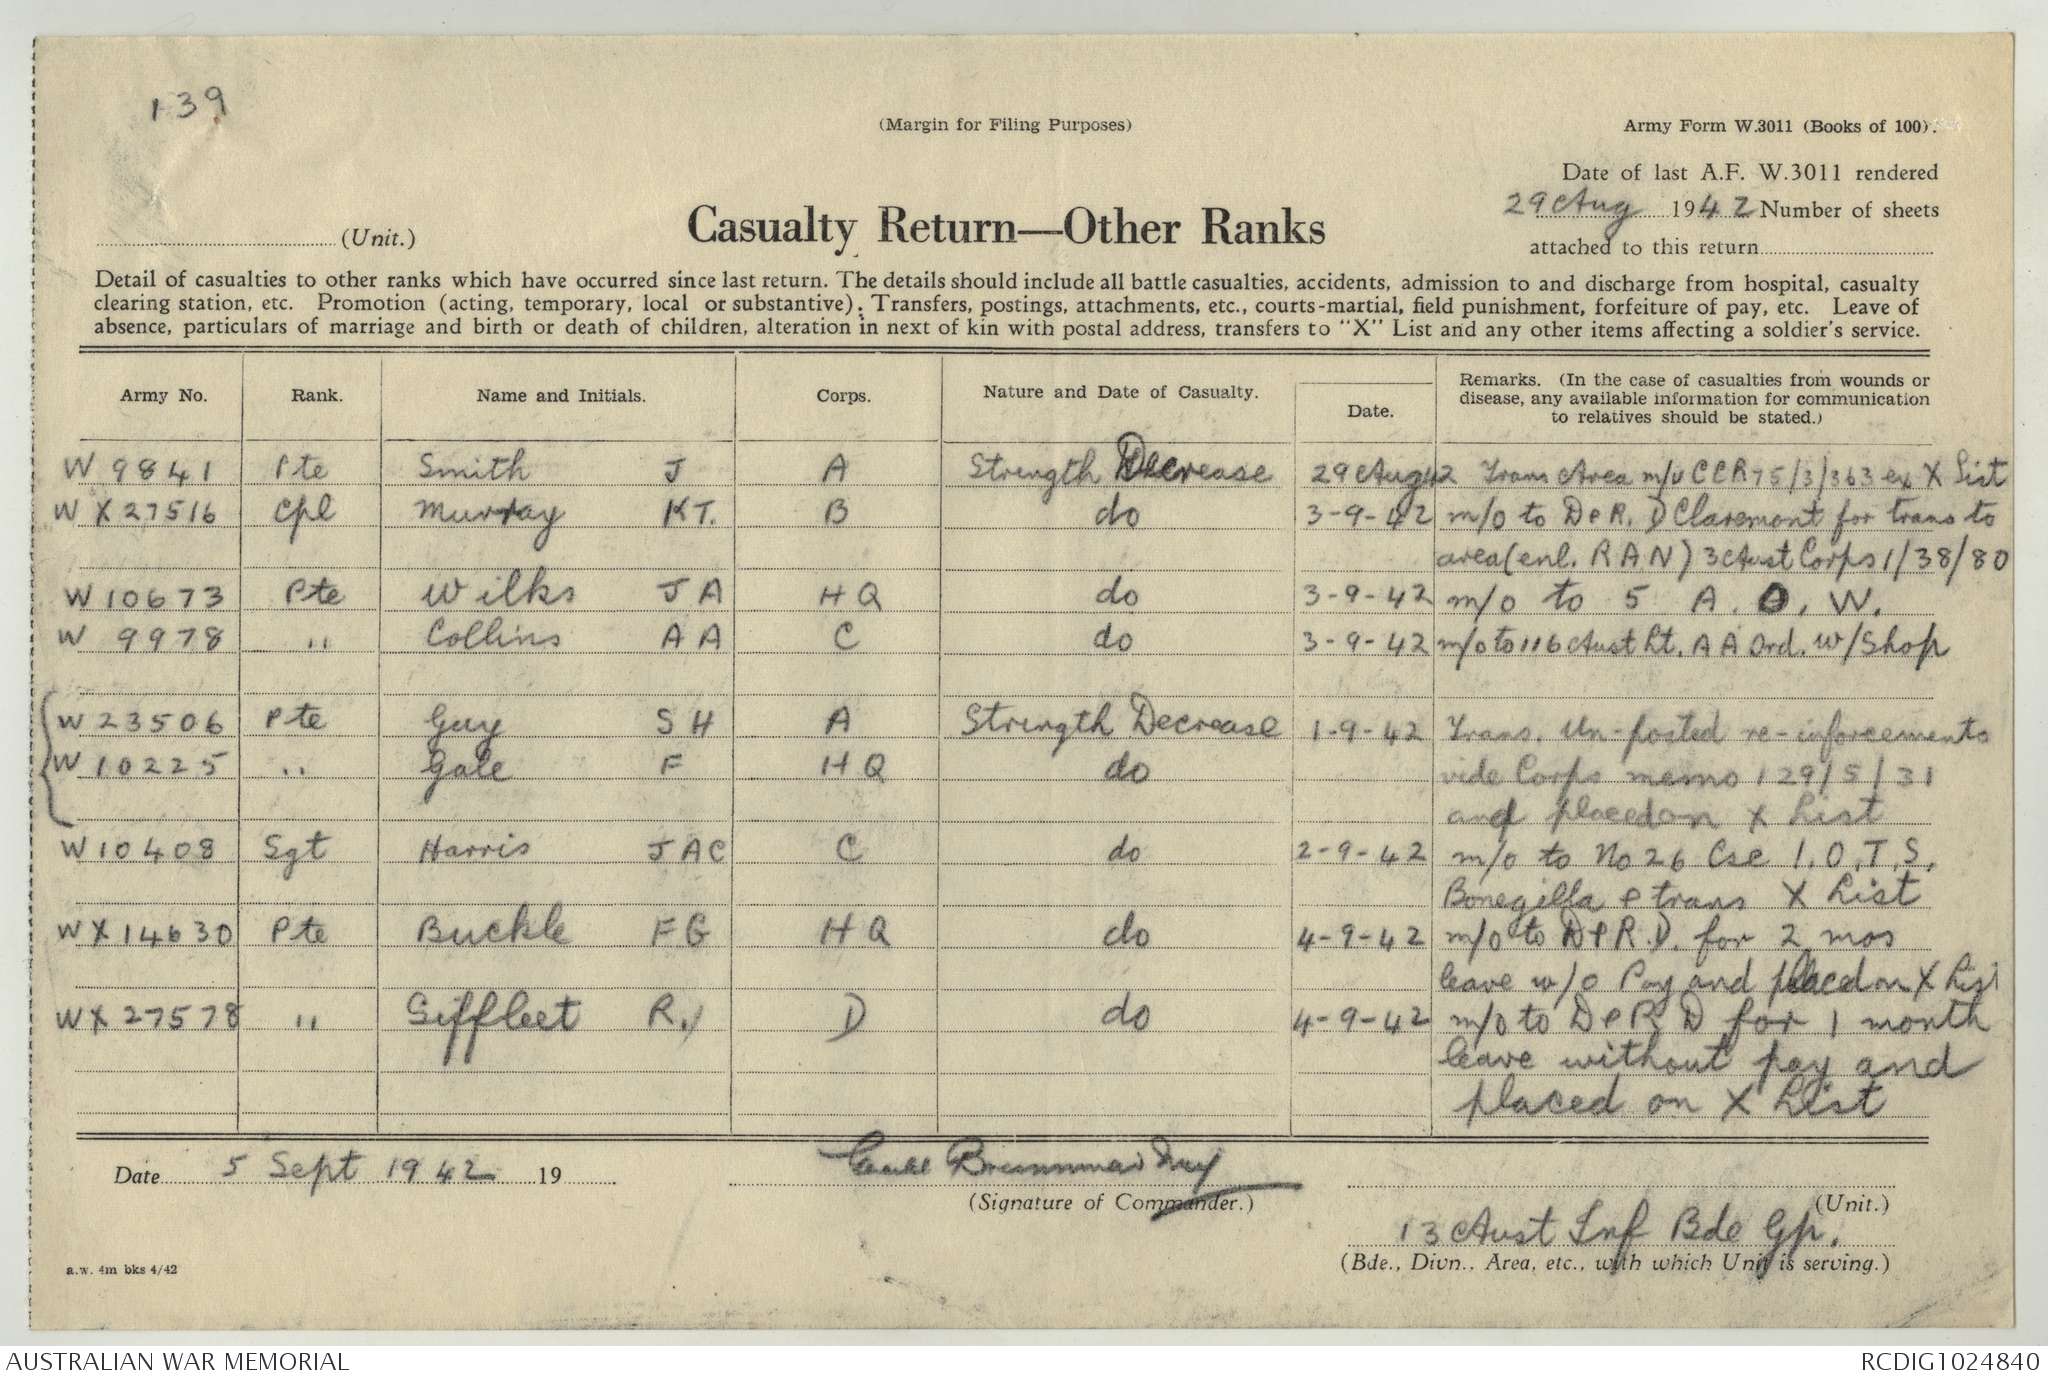 139
(Margin for Filing Purposes)
Army Form W.3011 (Books of 100).
Date of last A.F. W.3011 rendered
29 Aug 1942 Number of sheets
attached to this return
(Unit.)
Casualty Return—Other Ranks
Detail of casualties to other ranks which have occurred since last return. The details should include all battle casualties, accidents, admission to and discharge from hospital, casualty
clearing station, etc. Promotion (acting, temporary, local or substantive). Transfers, postings, attachments, etc., courts-martial, field punishment, forfeiture of pay, etc. Leave of
absence, particulars of marriage and birth or death of children, alteration in next of kin with postal address, transfers to "X" List and any other items affecting a soldier's service.
Army No. Rank. Name and Initials. Corps. Nature and Date of Casualty. Date. Remarks. (In the case of casualties from wounds or
disease, any available information for communication
to relatives should be stated.)
W 9841 Pte Smith J A Strength Decrease 29 Aug 42 Trans Area m/o CCR75/3/363 ex X List
WX27516 Cpl Murray KT. B do 3-9-42 m/o to D & R. D Claremont for trans to
area (enl. RAN) 3 Aust Corps 1/38/80
W10673 Pte Wilks JA HQ do 3-9-42 m/o to 5 A. O. W.
W 9978 " Collins AA C do 3-9-42 m/o to 116 Aust Lt. AA Ord. w/Shop
W23506 Pte Guy SH A Strength Decrease 1-9-42 Trans. Un-posted re-inforcements
W10225 " Gale F HQ do vide Corps memo 129/5/31
and placed on X List
W10408 Sgt Harris JAC C do 2-9-42 m/o to No 26 Cse I.O.T.S.
Bonegilla & trans X List
WX14630 Pte Buckle FG HQ do 4-9-42 m/o to D & R.D. for 2 mos
leave w/o Pay and placed on X List
WX27578 " Giffleet R. D do 4-9-42 m/o to D & R D for 1 month
leave without pay and
placed on X List
Date 5 Sept 1942 19
(Signature of Commander.)
(Unit.)
13 Aust Inf Bde Gp.
(Bde., Divn., Area, etc., with which Unit is serving.)
a.w. 4m bks 4/42
AUSTRALIAN WAR MEMORIAL
RCDIG1024840